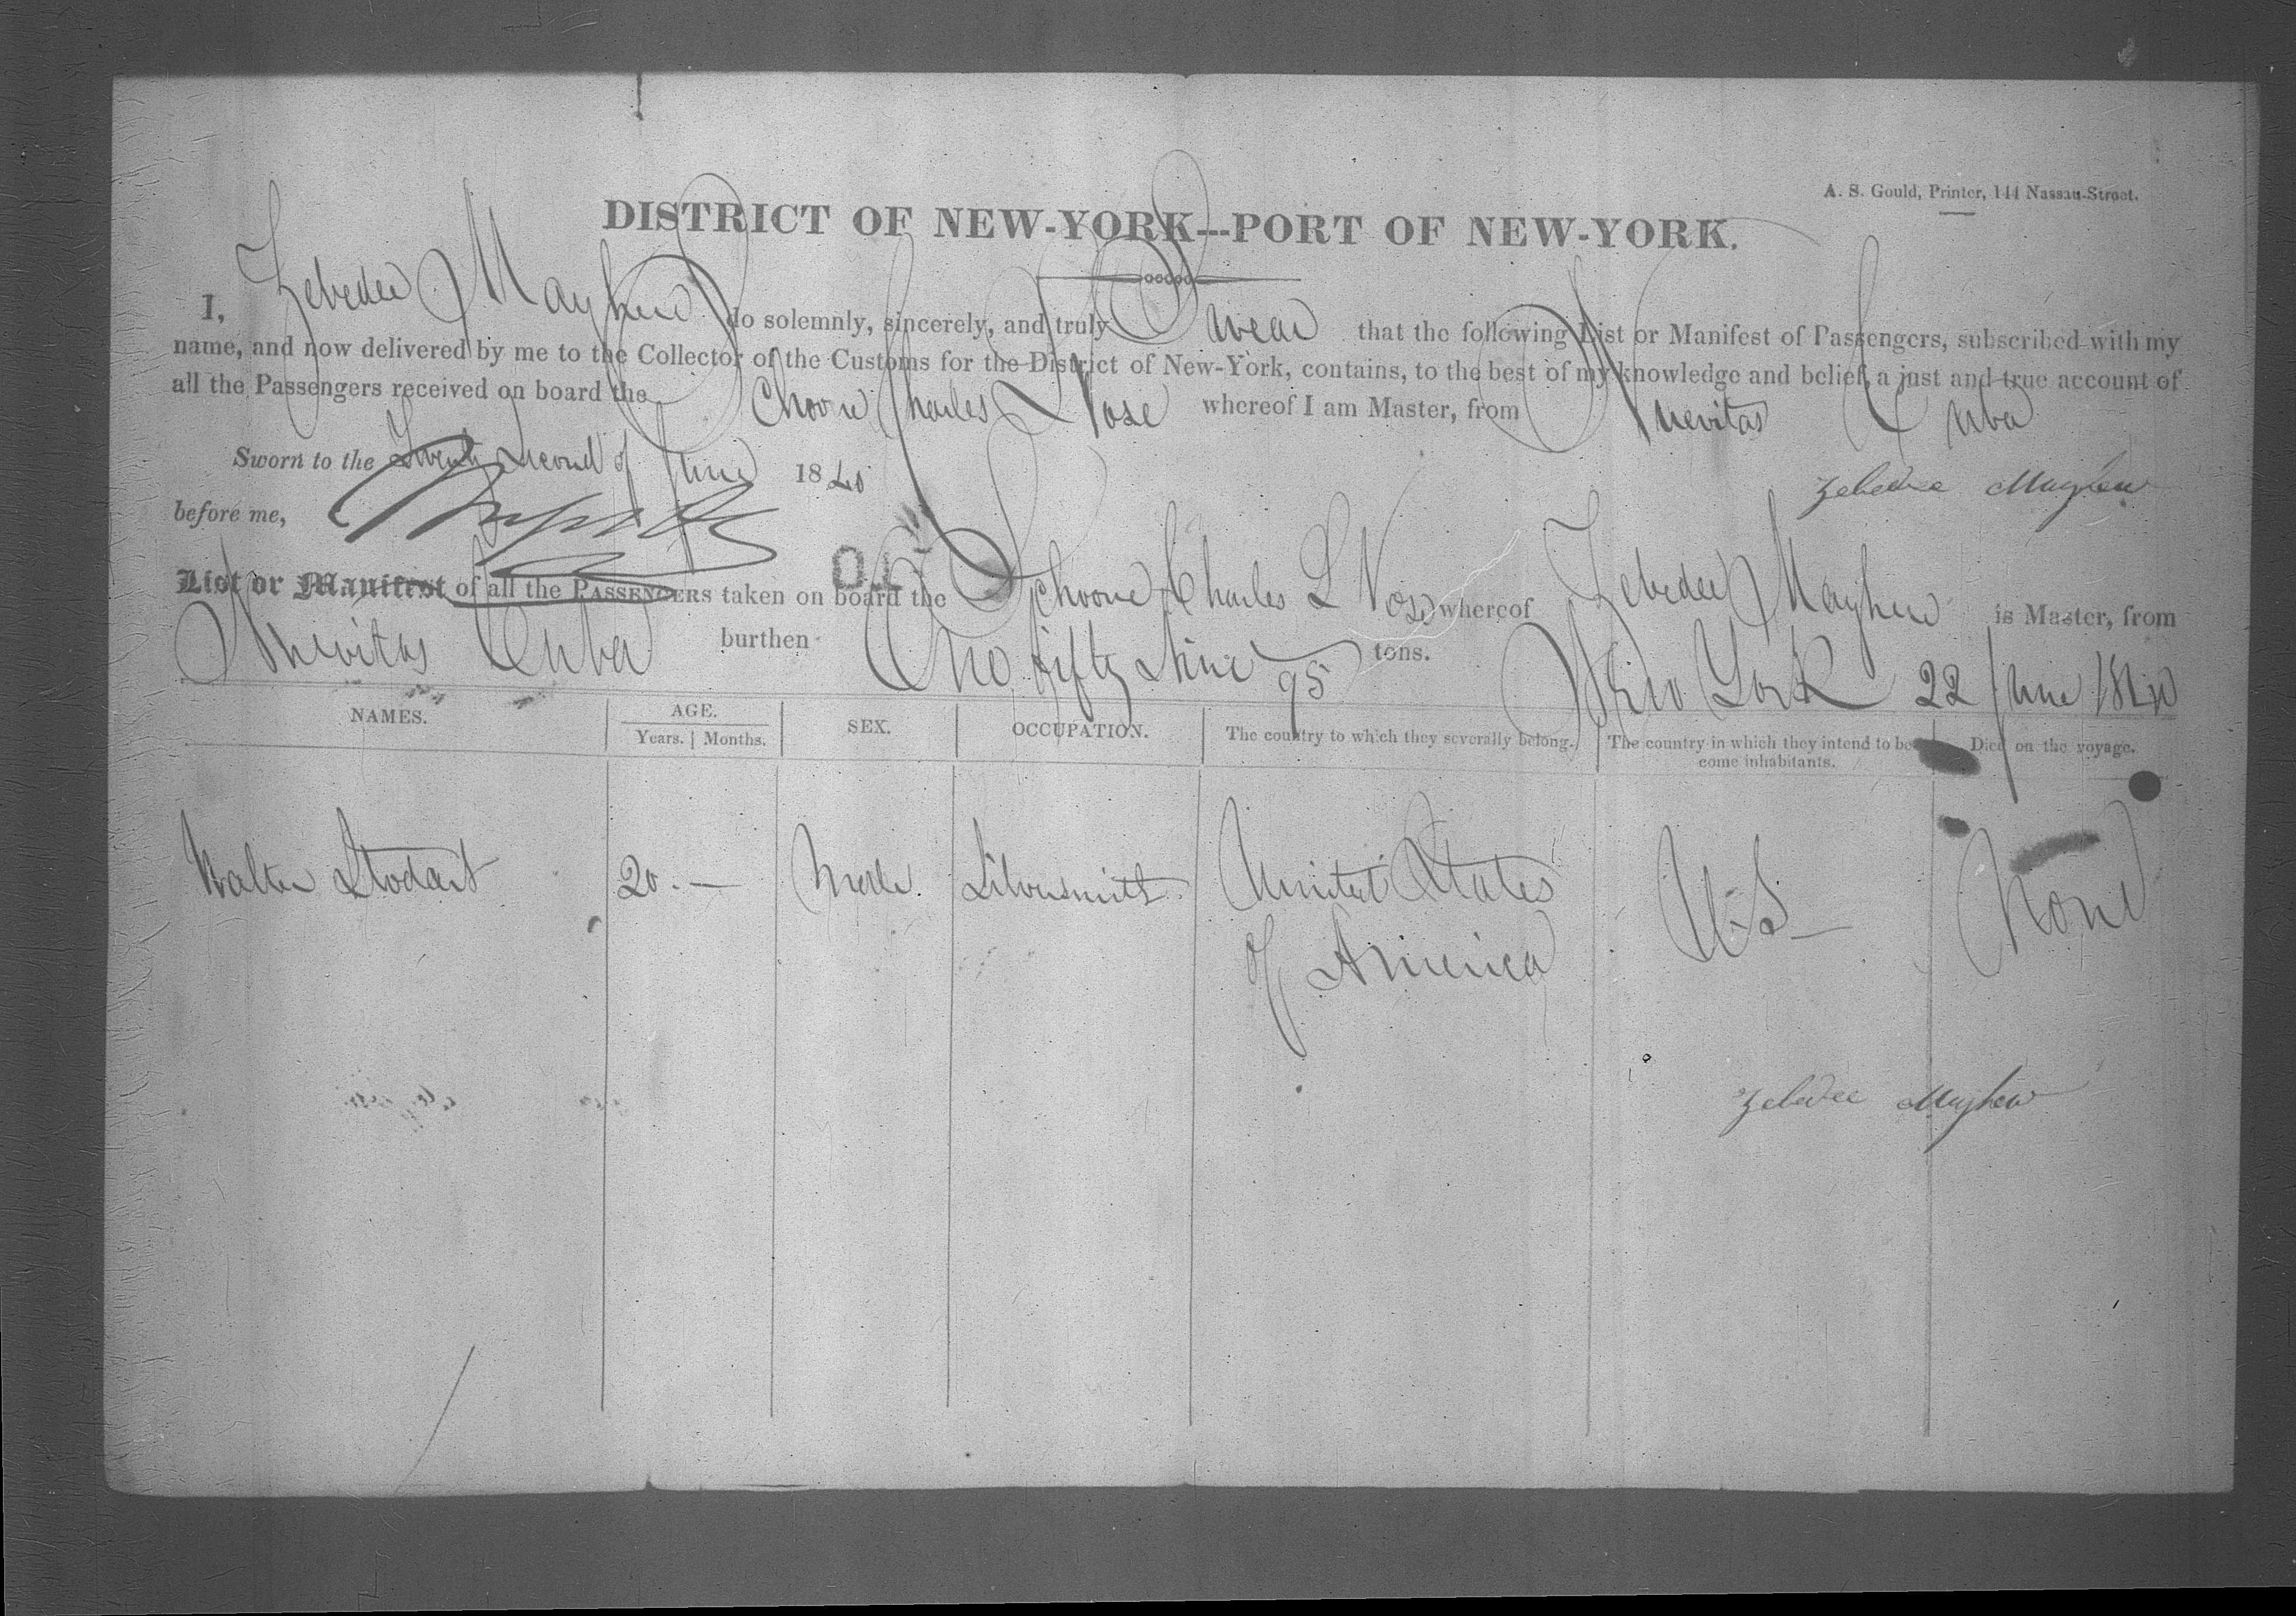 A. S. Gould, Printer, 144 Nassau-Street.
DISTRICT OF NEW-YORK---PORT OF NEW-YORK.
I, Zebedee Mayhew do solemnly, sincerely, and truly Swear that the following List or Manifest of Passengers, subscribed with my
name, and now delivered by me to the Collector of the Customs for the District of New-York, contains, to the best of my knowledge and belief, a just and true account of
all the Passengers received on board the Schooner Charles L Vose whereof I am Master, from Nuevitas Cuba
Sworn to the Twenty Second of June 1840
Zebedee Mayhew
before me,
List or Manifest of all the PASSENGERS taken on board the Schooner Charles L Vose whereof Zebedee Mayhew is Master, from
Nuevitas Cuba burthen One fifty Nine 95 tons. New York 22 June 1840
NAMES. AGE. SEX. OCCUPATION. The country to which they severally belong. The country in which they intend to be- Died on the voyage.
Years. | Months. come inhabitants.
Walter Stodart 20. — Male. Silversmith United States U.S — None
of America
Zebedee Mayhew